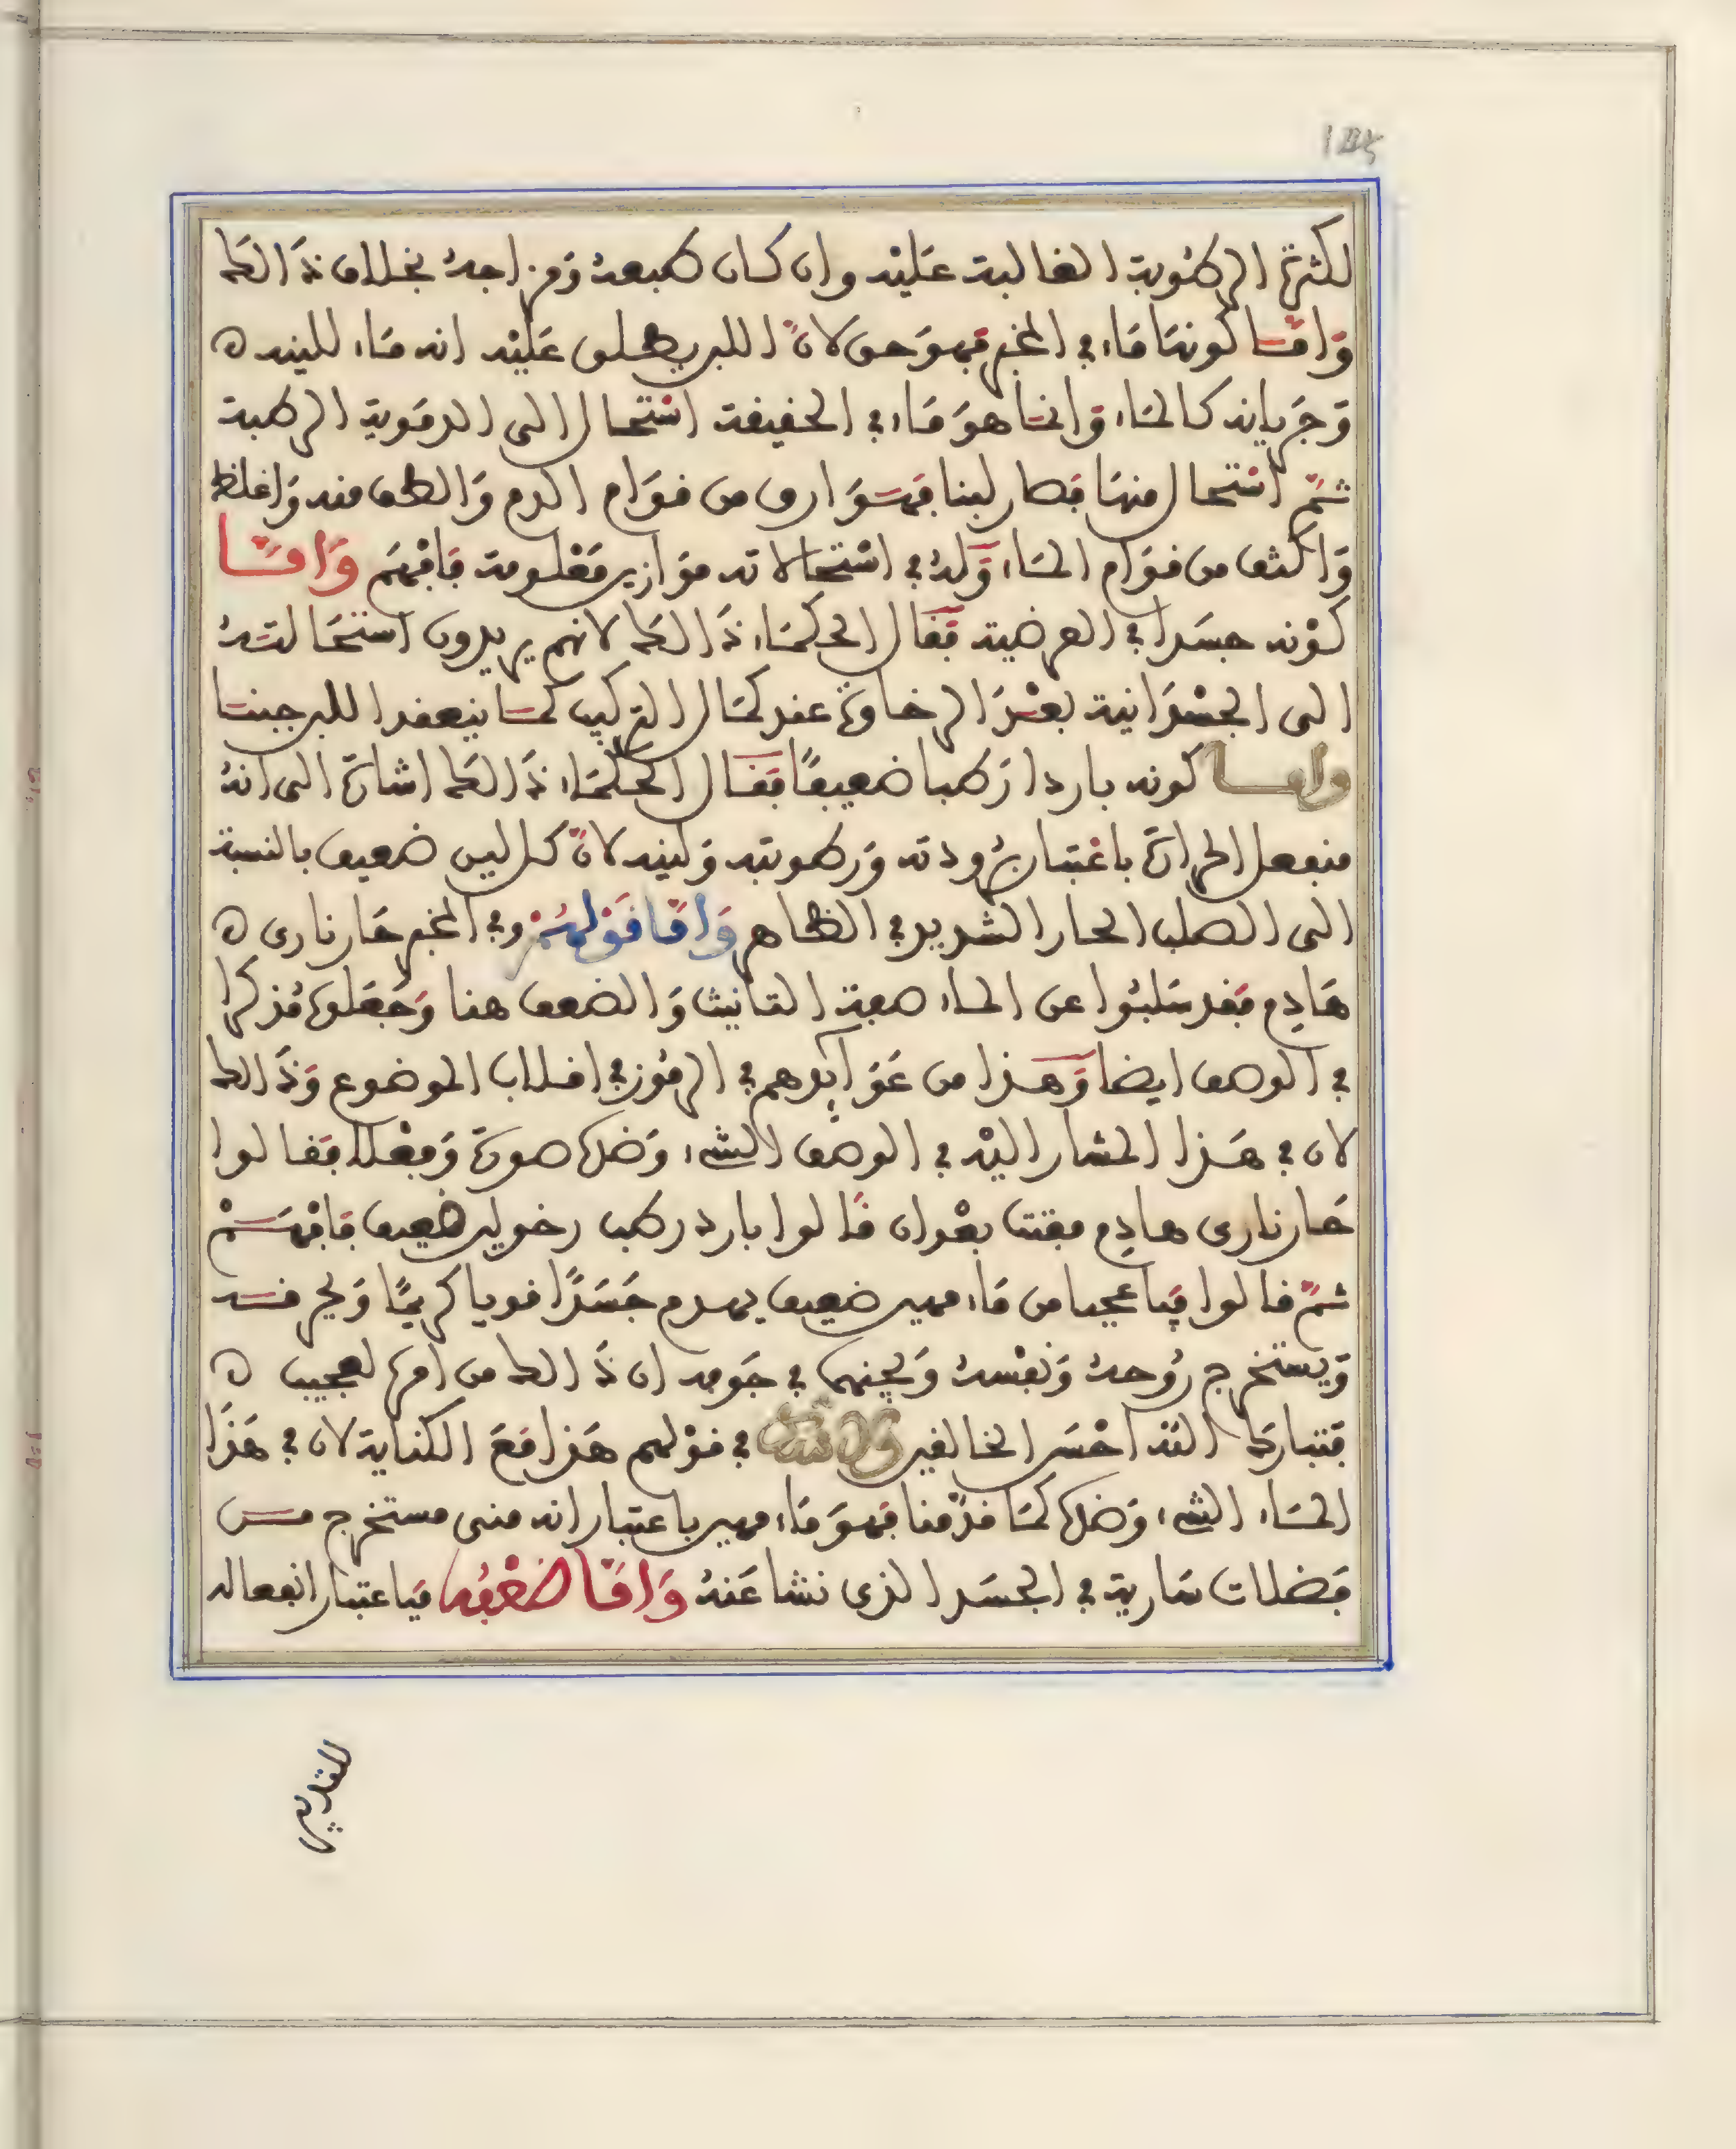 لكثرة الرطوبة الغالبة عليه وان كان طبعه ومزاجه بخلاف ذالك
واما كونها ماء في المخبر فهو حق لان اللبن يطلق عليه انه ماء للينه ه
وجريانه كالماء وانما هو ماء في الحقيقة استحال الى الدموية الرطبة
ثم استحال منها فصار لبنا فهو ارق من قوام الدم والطف منه واغلظ
واكثف من قوام الماء وله في استحالاته موازين معلومة فافهم واما
كونه جسدا في العرضية فقال الحكماء ذالك لانهم يريدون استحالته
الى الجسدانية بعد الرخاوة عند كمال التركيب كما ينعقد اللبن جبنا
واما كونه باردا رطبا ضعيفا فقال الحكماء ذالك اشارة الى انه
منفعل الحرارة باعتبار برودته ورطوبته ولينه لان كل لين ضعيف بالنسبة
الى الصلب الحار الشديد في الظاهر واما قولهم وفي المخبر حار ناري ه
هادم فقد سلبوا عن الماء صفة التانيث والضعف هنا وجعلوه مذكرا
في الوصف ايضا وهذا من عوايدهم في الرموز في اقلاب الموضوع وذالك
لان في هذا المشار اليه في الوصف الشيء وضده صورة وفعلا فقالوا
حار ناري هادم مفتت بعد ان قالوا بارد رطب رخو لين ضعيف فافهم
ثم قالوا فيا عجبا من ماء مهين ضعيف يهدم جسدا قويا كريما ويحرقه
ويستخرج روحه ونفسه ويجنهما في جوفه ان ذالك من امر لعجيب ه
فتبارك الله احسن الخالقين في قولهم هذا مع الكناية لان في هذا
الماء الشيء وضده كما قدمنا فهو ماء مهين باعتبار انه منى مستخرج من
فضلات سارية في الجسد الذي نشا عنه واما ضعفه فباعتبار انفعاله
للتدبير